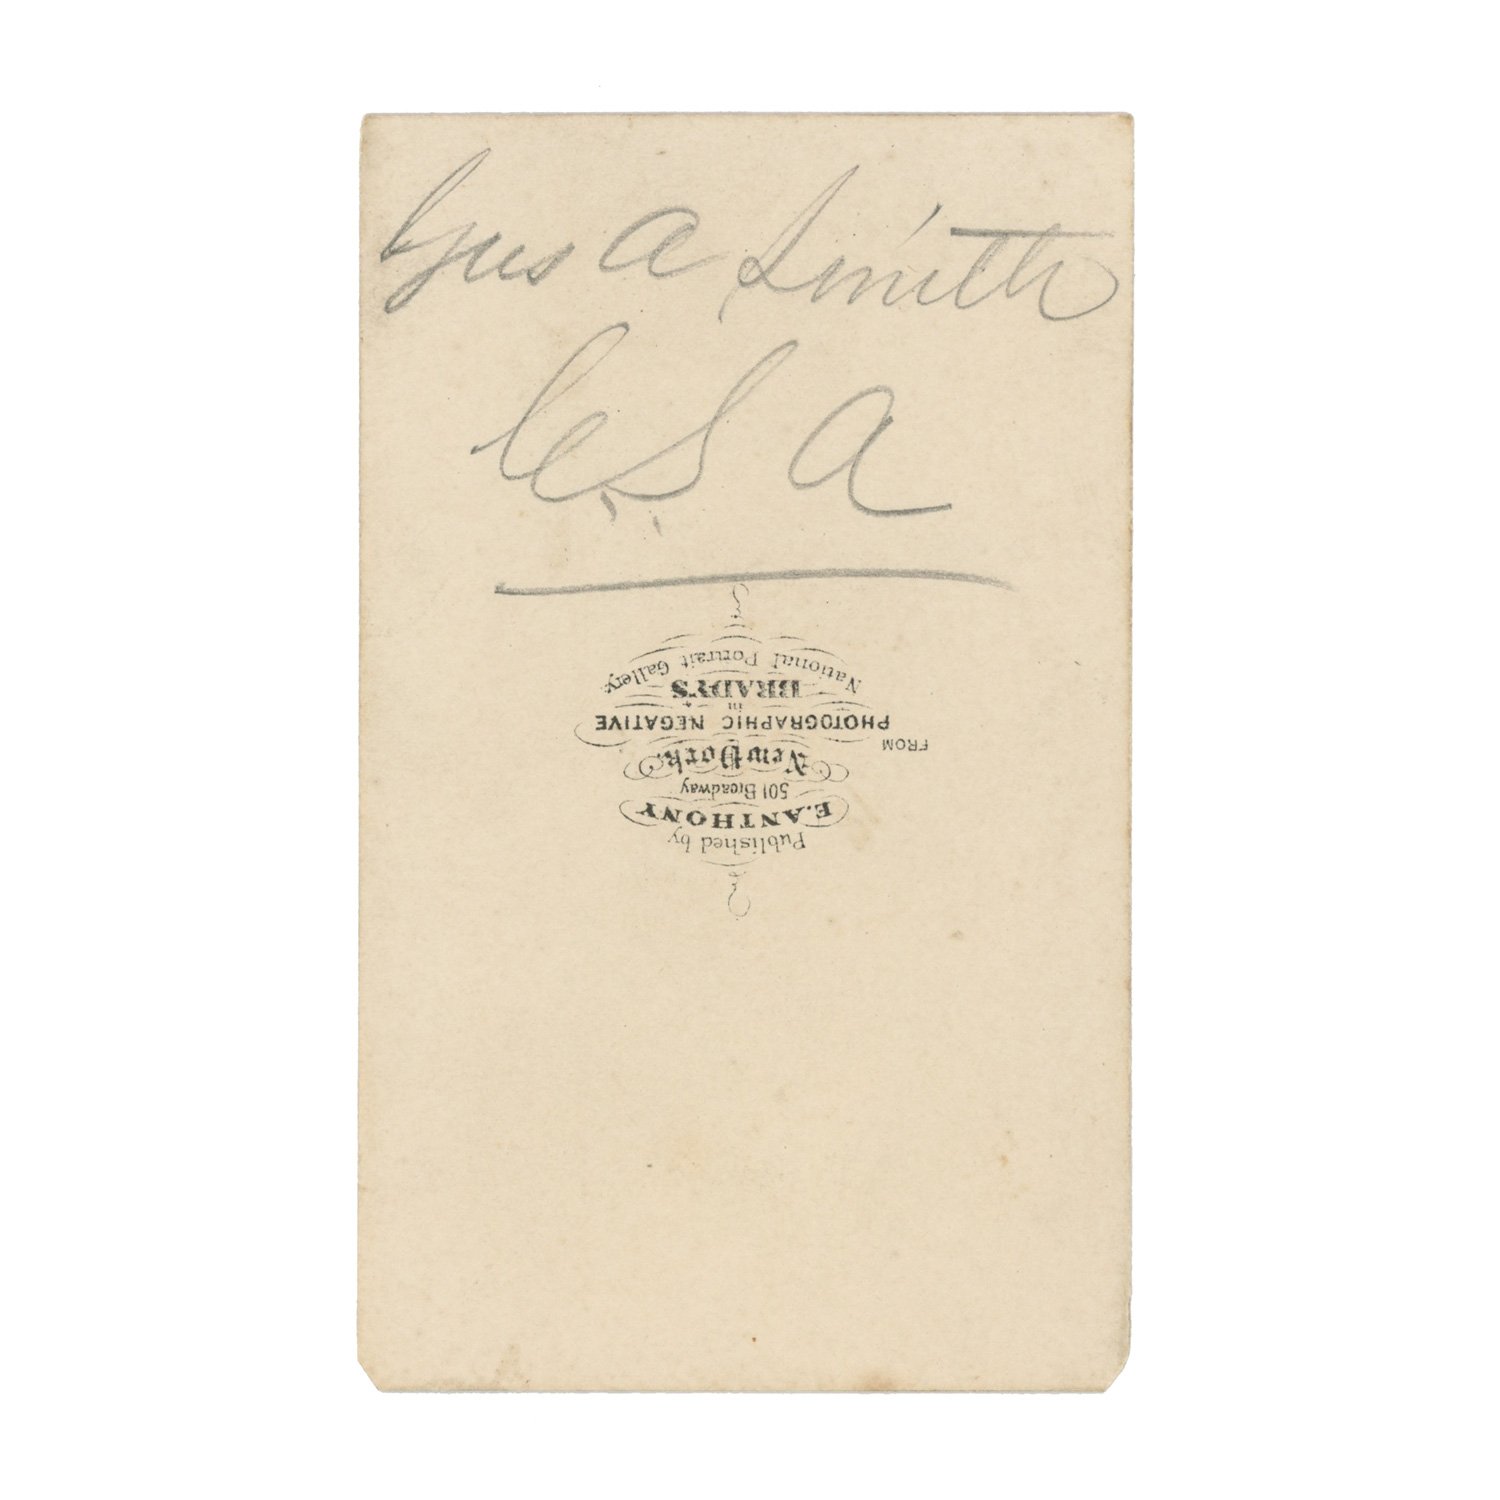 Gus A Smith
C.S.A
Published by
E. ANTHONY
501 Broadway
New York.
FROM
PHOTOGRAPHIC NEGATIVE
in
BRADY'S
National Portrait Gallery.